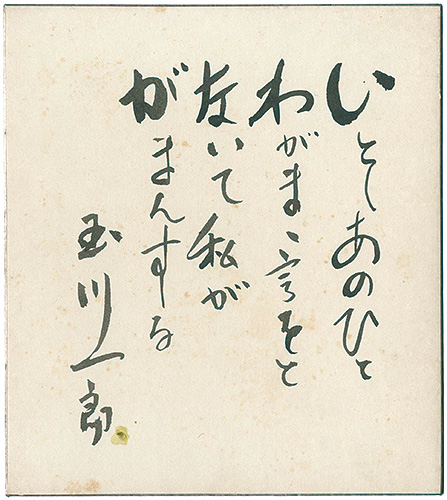 いとしあのひと
わがまゝ言と
ないて私が
がまんする
玉川一郎